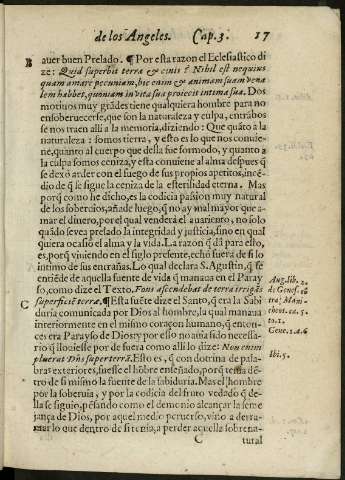 de los Angeles. Cap. 3. 17
B auer buen Prelado. ¶ Por esta razon el Eclesiastico di
ze: Quid superbis terra & cinis? Nihil est nequius
quam amare pecuniam, hic enim & animam suam vena
lem habbet, quoniam in vita sua proiecit intima sua. Dos
motiuos muy grãdes tiene qualquiera hombre para no
ensoberuecerse, que son la naturaleza y culpa, entrãbos
se nos traen alli a la memoria, diziendo: Que quãto à la
naturaleza: somos tierra, y esto es lo que nos conuie-
ne, quanto al cuerpo que della fue formado, y quanto a
la culpa somos ceniza, y esta conuiene al alma despues q̃
se dexò arder con el fuego de sus propios apetitos, incẽ-
dio de q̃ se sigue la ceniza de la esterilidad eterna. Mas
porq̃ como he dicho, es la codicia passion muy natural
de los soberuios, añade luego, q̃ no ay mal mayor que a-
mar el dinero, por el qual venderà el auariento, no solo
quãdo se vea prelado la integridad y justicia, sino en qual
quiera ocasiõ el alma y la vida. La razon q̃ dà para ello,
es, porq̃ viuiendo en el siglo presente, echò fuera de si lo
intimo de sus entrañas. Lo qual declara S. Agustin, q̃ se
entiẽde de aquella fuente de vida q̃ manaua en el Paray
so, como dize el Texto. Fons ascendebas de terra irrigãs
C superficiẽ terræ. ¶ Esta fuẽte dize el Santo, q̃ era la Sabi
duria comunicada por Dios al hombre, la qual manaua
interiormente en el mismo coraçon humano, q̃ enton-
ces era Parayso de Dios; y por esso no auia sido necessa-
rio q̃ llouiesse por de fuera como alli lo dize: Non enim
pluerat Dñs super terrã. Esto es, q̃ con dotrina de pala-
bras exteriores, fuesse el hõbre enseñado, porq̃ tenia dẽ-
tro de si mismo la fuente de la sabiduria. Mas el hombre
por la soberuia, y por la codicia del fruto vedado q̃ de-
lla se siguio, pẽsando como el demonio alcançar la seme
jança de Dios, por aquel medio peruerso, vino a derra-
mar lo que dentro de si tenia, a perder aquella sobrena-
C tural
Aug. lib. 2.
de Genes. cõ
tra Mani-
cheos. ca. 5.
to. 1.
Gene. 2. 6
Ibi. 5.